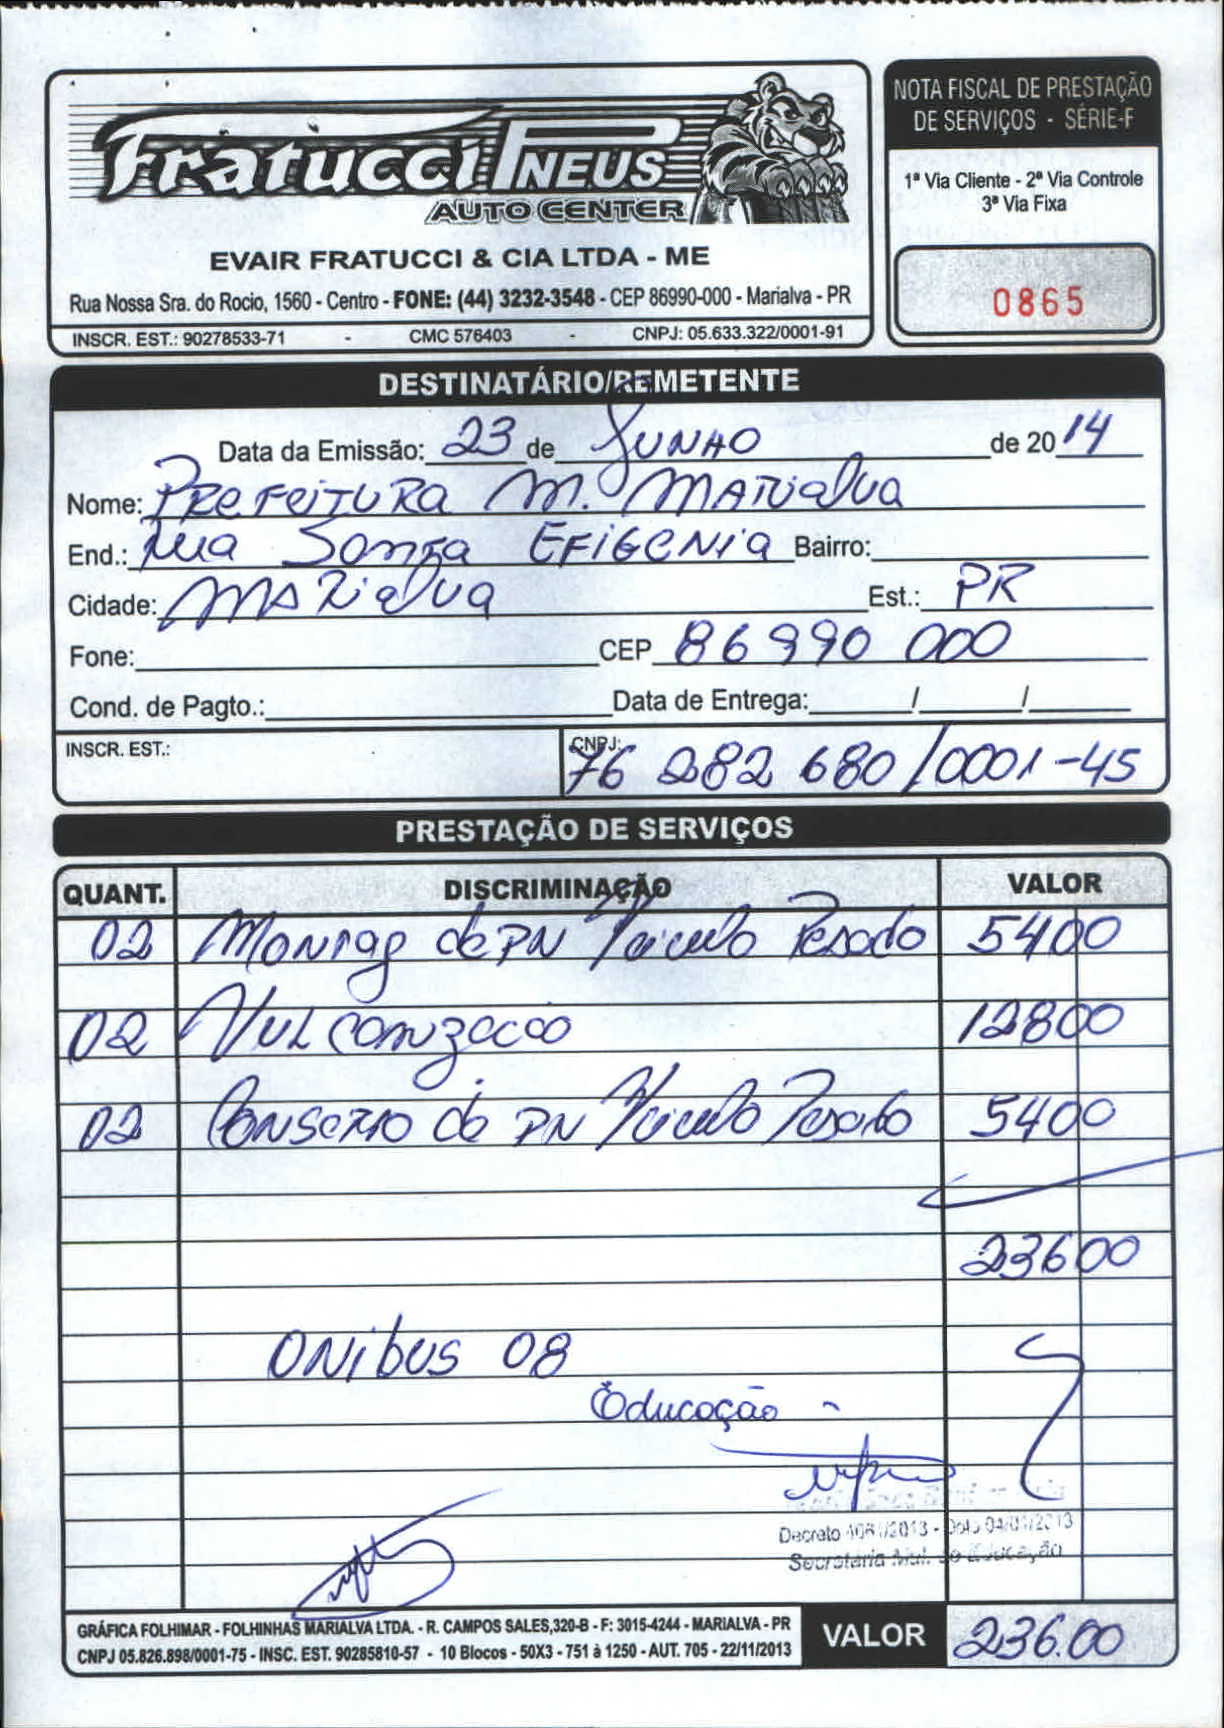 Fratucci PNEUS
AUTO CENTER
EVAIR FRATUCCI & CIA LTDA - ME
Rua Nossa Sra. do Rocio, 1560 - Centro - FONE: (44) 3232-3548 - CEP 86990-000 - Marialva - PR
INSCR. EST.: 90278533-71 - CMC 576403 - CNPJ: 05.633.322/0001-91
NOTA FISCAL DE PRESTAÇÃO
DE SERVIÇOS - SÉRIE-F
1ª Via Cliente - 2ª Via Controle
3ª Via Fixa
0865
DESTINATÁRIO/REMETENTE
Data da Emissão: 23 de JUNHO de 2014
Nome: PREFEITURA M. MARIALVA
End.: Rua Santa EFIGENIA Bairro:
Cidade: MARIALVA Est.: PR
Fone: CEP 86990 000
Cond. de Pagto.: Data de Entrega: / /
INSCR. EST.: CNPJ: 76 282 680/0001-45
PRESTAÇÃO DE SERVIÇOS
QUANT. DISCRIMINAÇÃO VALOR
02 Montag de PN Veiculo Pesado 5400
02 Vulcanizacao 12800
02 Conserto de PN Veiculo Pesado 5400
23600
ONibus 08
Educação -
Decreto /2013 - 04/01/2013
Secretaria Mul. de Educação
GRÁFICA FOLHIMAR - FOLHINHAS MARIALVA LTDA. - R. CAMPOS SALES,320-B - F: 3015-4244 - MARIALVA - PR
CNPJ 05.826.898/0001-75 - INSC. EST. 90285810-57 - 10 Blocos - 50X3 - 751 à 1250 - AUT. 705 - 22/11/2013
VALOR 236.00